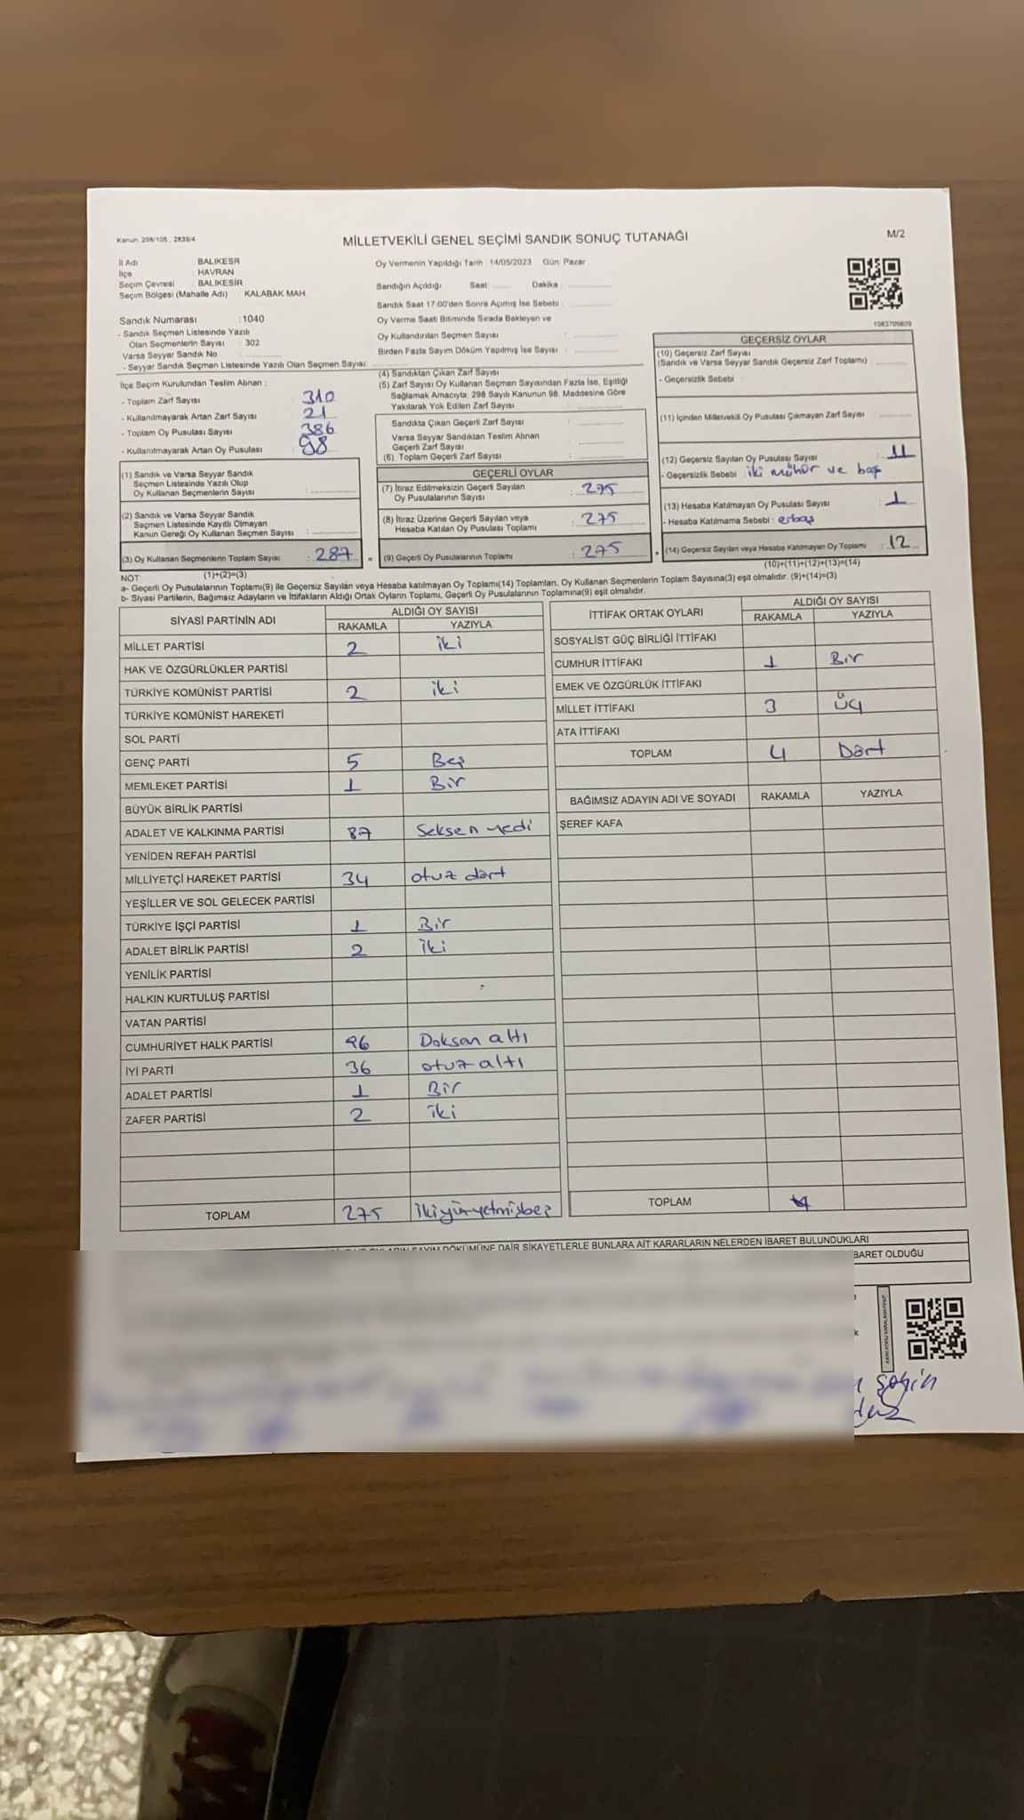 Kanun 298/105, 2839/4
MİLLETVEKİLİ GENEL SEÇİMİ SANDIK SONUÇ TUTANAĞI
M/2
İl Adı BALIKESİR
İlçe HAVRAN
Seçim Çevresi BALIKESİR
Seçim Bölgesi (Mahalle Adı) KALABAK MAH
Sandık Numarası : 1040
- Sandık Seçmen Listesinde Yazılı
Olan Seçmenlerin Sayısı : 302
Varsa Seyyar Sandık No
- Seyyar Sandık Seçmen Listesinde Yazılı Olan Seçmen Sayısı
İlçe Seçim Kurulundan Teslim Alınan :
- Toplam Zarf Sayısı 310
- Kullanılmayarak Artan Zarf Sayısı 21
- Toplam Oy Pusulası Sayısı 386
- Kullanılmayarak Artan Oy Pusulası 98
(1) Sandık ve Varsa Seyyar Sandık
Seçmen Listesinde Yazılı Olup
Oy Kullanan Seçmenlerin Sayısı
(2) Sandık ve Varsa Seyyar Sandık
Seçmen Listesinde Kayıtlı Olmayan
Kanun Gereği Oy Kullanan Seçmen Sayısı
(3) Oy Kullanan Seçmenlerin Toplam Sayısı : 287
(1)+(2)=(3)
Oy Vermenin Yapıldığı Tarih : 14/05/2023 Gün: Pazar
Sandığın Açıldığı Saat Dakika :
Sandık Saat 17:00'den Sonra Açılmış İse Sebebi :
Oy Verme Saati Bitiminde Sırada Bekleyen ve
Oy Kullandırılan Seçmen Sayısı :
Birden Fazla Sayım Döküm Yapılmış İse Sayısı :
(4) Sandıktan Çıkan Zarf Sayısı
(5) Zarf Sayısı Oy Kullanan Seçmen Sayısından Fazla İse, Eşitliği
Sağlamak Amacıyla, 298 Sayılı Kanunun 98. Maddesine Göre
Yakılarak Yok Edilen Zarf Sayısı
Sandıkta Çıkan Geçerli Zarf Sayısı
Varsa Seyyar Sandıktan Teslim Alınan
Geçerli Zarf Sayısı
(6). Toplam Geçerli Zarf Sayısı
GEÇERLİ OYLAR
(7) İtiraz Edilmeksizin Geçerli Sayılan
Oy Pusulalarının Sayısı : 275
(8) İtiraz Üzerine Geçerli Sayılan veya
Hesaba Katılan Oy Pusulası Toplamı : 275
(9) Geçerli Oy Pusulalarının Toplamı : 275
1083705809
GEÇERSİZ OYLAR
(10) Geçersiz Zarf Sayısı
(Sandık ve Varsa Seyyar Sandık Geçersiz Zarf Toplamı)
- Geçersizlik Sebebi
(11) İçinden Milletvekili Oy Pusulası Çıkmayan Zarf Sayısı
(12) Geçersiz Sayılan Oy Pusulası Sayısı 11
- Geçersizlik Sebebi : iki mühür ve boş
(13) Hesaba Katılmayan Oy Pusulası Sayısı 1
- Hesaba Katılmama Sebebi :
(14) Geçersiz Sayılan veya Hesaba Katılmayan Oy Toplamı : 12
(10)+(11)+(12)+(13)=(14)
NOT
a- Geçerli Oy Pusulalarının Toplamı(9) ile Geçersiz Sayılan veya Hesaba katılmayan Oy Toplamı(14) Toplamları, Oy Kullanan Seçmenlerin Toplam Sayısına(3) eşit olmalıdır. (9)+(14)=(3)
b- Siyasi Partilerin, Bağımsız Adayların ve İttifakların Aldığı Oyların Toplamı, Geçerli Oy Pusulalarının Toplamına(9) eşit olmalıdır.
SİYASİ PARTİNİN ADI ALDIĞI OY SAYISI
RAKAMLA YAZIYLA
MİLLET PARTİSİ 2 iki
HAK VE ÖZGÜRLÜKLER PARTİSİ
TÜRKİYE KOMÜNİST PARTİSİ 2 iki
TÜRKİYE KOMÜNİST HAREKETİ
SOL PARTİ
GENÇ PARTİ 5 Beş
MEMLEKET PARTİSİ 1 Bir
BÜYÜK BİRLİK PARTİSİ
ADALET VE KALKINMA PARTİSİ 87 Seksen yedi
YENİDEN REFAH PARTİSİ
MİLLİYETÇİ HAREKET PARTİSİ 34 otuz dört
YEŞİLLER VE SOL GELECEK PARTİSİ
TÜRKİYE İŞÇİ PARTİSİ 1 Bir
ADALET BİRLİK PARTİSİ 2 iki
YENİLİK PARTİSİ
HALKIN KURTULUŞ PARTİSİ
VATAN PARTİSİ
CUMHURİYET HALK PARTİSİ 96 Doksan altı
İYİ PARTİ 36 otuz altı
ADALET PARTİSİ 1 Bir
ZAFER PARTİSİ 2 iki
TOPLAM 275 İkiyüzyetmişbeş
İTTİFAK ORTAK OYLARI ALDIĞI OY SAYISI
RAKAMLA YAZIYLA
SOSYALİST GÜÇ BİRLİĞİ İTTİFAKI
CUMHUR İTTİFAKI 1 Bir
EMEK VE ÖZGÜRLÜK İTTİFAKI
MİLLET İTTİFAKI 3 Üç
ATA İTTİFAKI
TOPLAM 4 Dört
BAĞIMSIZ ADAYIN ADI VE SOYADI RAKAMLA YAZIYLA
ŞEREF KAFA
TOPLAM
DÖKÜMÜNE DAİR ŞİKAYETLERLE BUNLARA AİT KARARLARIN NELERDEN İBARET BULUNDUKLARI
BARET OLDUĞU